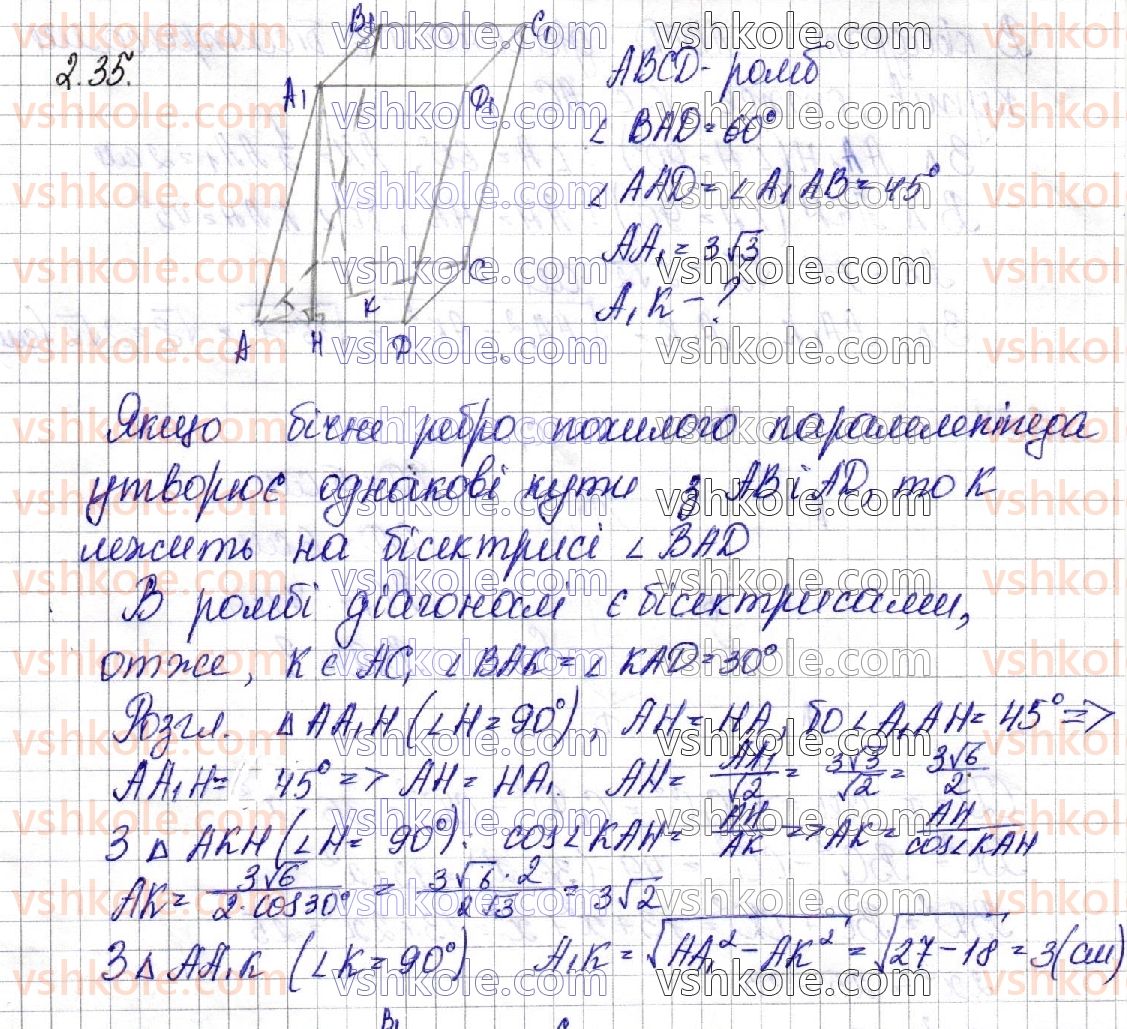 2.35.
B₁ C₁
A₁ D₁
C
K
A H D
ABCD - ромб
∠ BAD = 60°
∠ AAD = ∠ A₁AB = 45°
AA₁ = 3√3
A₁K - ?
Якщо бічне ребро похилого паралелепіпеда
утворює однакові кути з AB і AD, то K
лежить на бісектрисі ∠ BAD
В ромбі діагоналі є бісектрисами,
отже, K є AC, ∠ BAK = ∠ KAD = 30°
Розгл. △ AA₁H (∠H = 90°), AH = HA₁, бо ∠A₁AH = 45° =>
AA₁H = 45° => AH = HA₁ AH = AA₁/√2 = 3√3/√2 = 3√6/2
З △ AKH (∠H = 90°): cos∠KAH = AH/AK => AK = AH/cos∠KAH
AK = 3√6/(2·cos30°) = 3√6·2/(2√3) = 3√2
З △ AA₁K (∠K = 90°) A₁K = √(AA₁² - AK²) = √(27-18) = 3(см)
B₁ C
vshkole.com